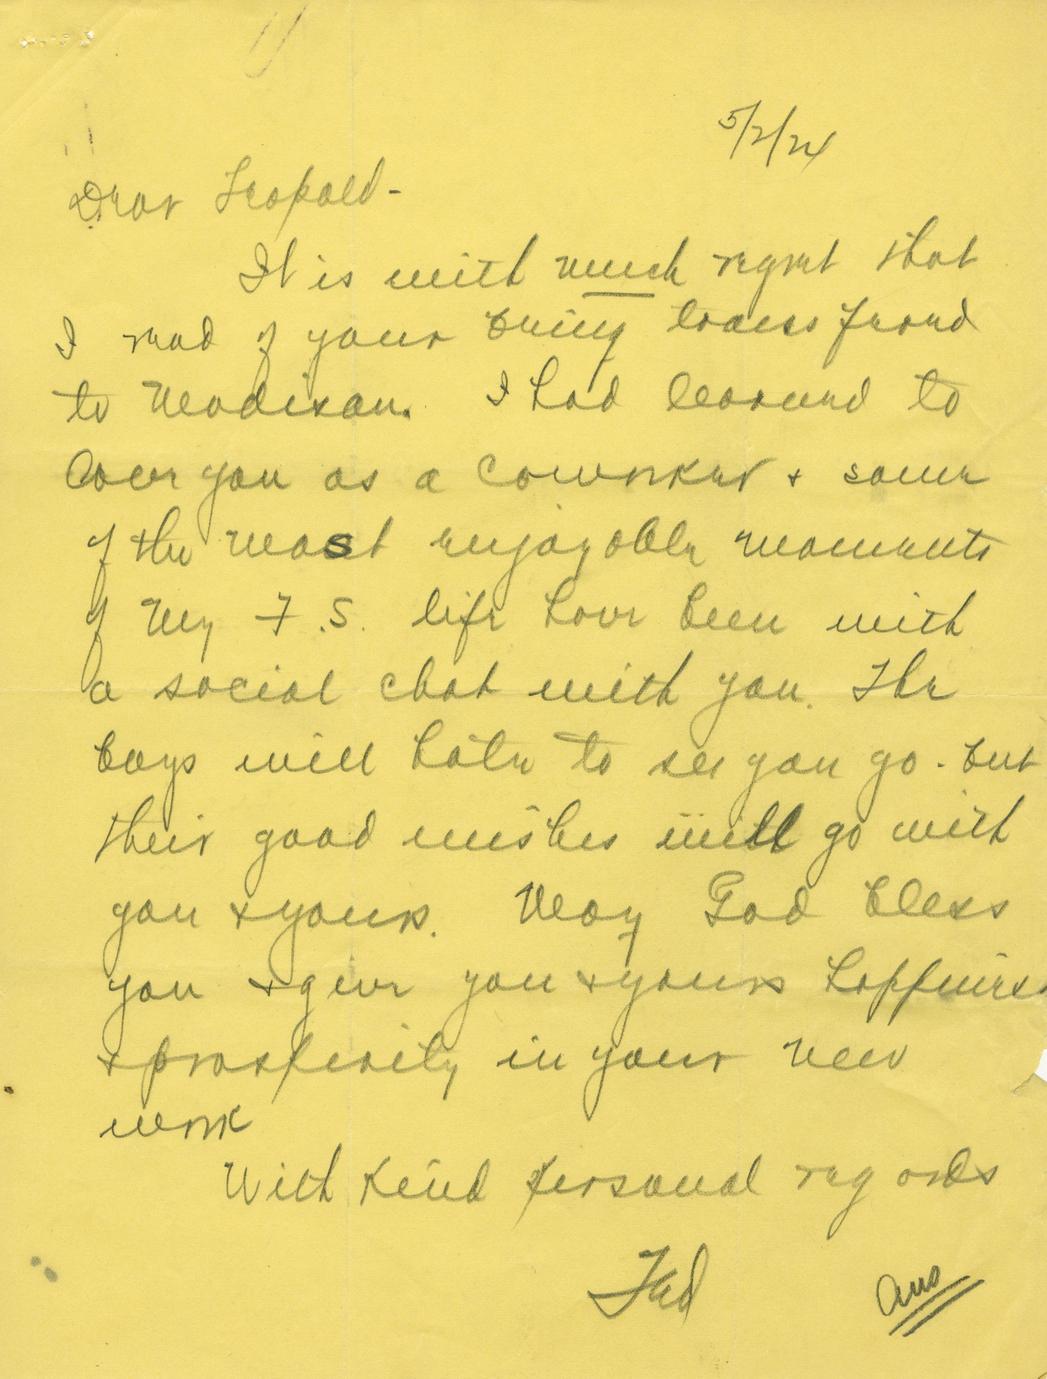 5/2/24
Dear Leopold-
It is with much regret that
I read of your being transferred
to Madison. I had learned to
love you as a coworker + some
of the most enjoyable moments
of my F.S. life have been with
a social chat with you. The
boys will hate to see you go - but
their good wishes will go with
you + yours. May God bless
you + give you + yours happiness
+ prosperity in your new
work
With kind personal regards
Fred
Ans